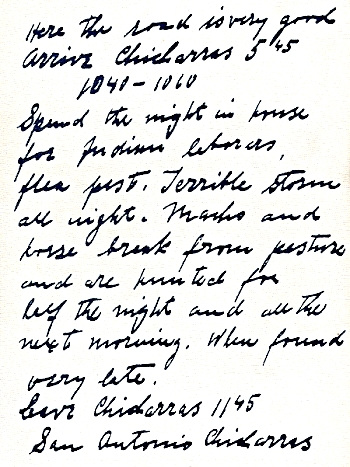 Here the road is very good
Arrive Chicharras 5 45
1040 - 1060
Spend the night in house
for Indian laborers,
flea pest. Terrible storm
all night. Macho and
horse break from pasture
and are hunted for
half the night and all the
next morning. When found
very late.
Leave Chicharras 11 45
San Antonio Chicharras